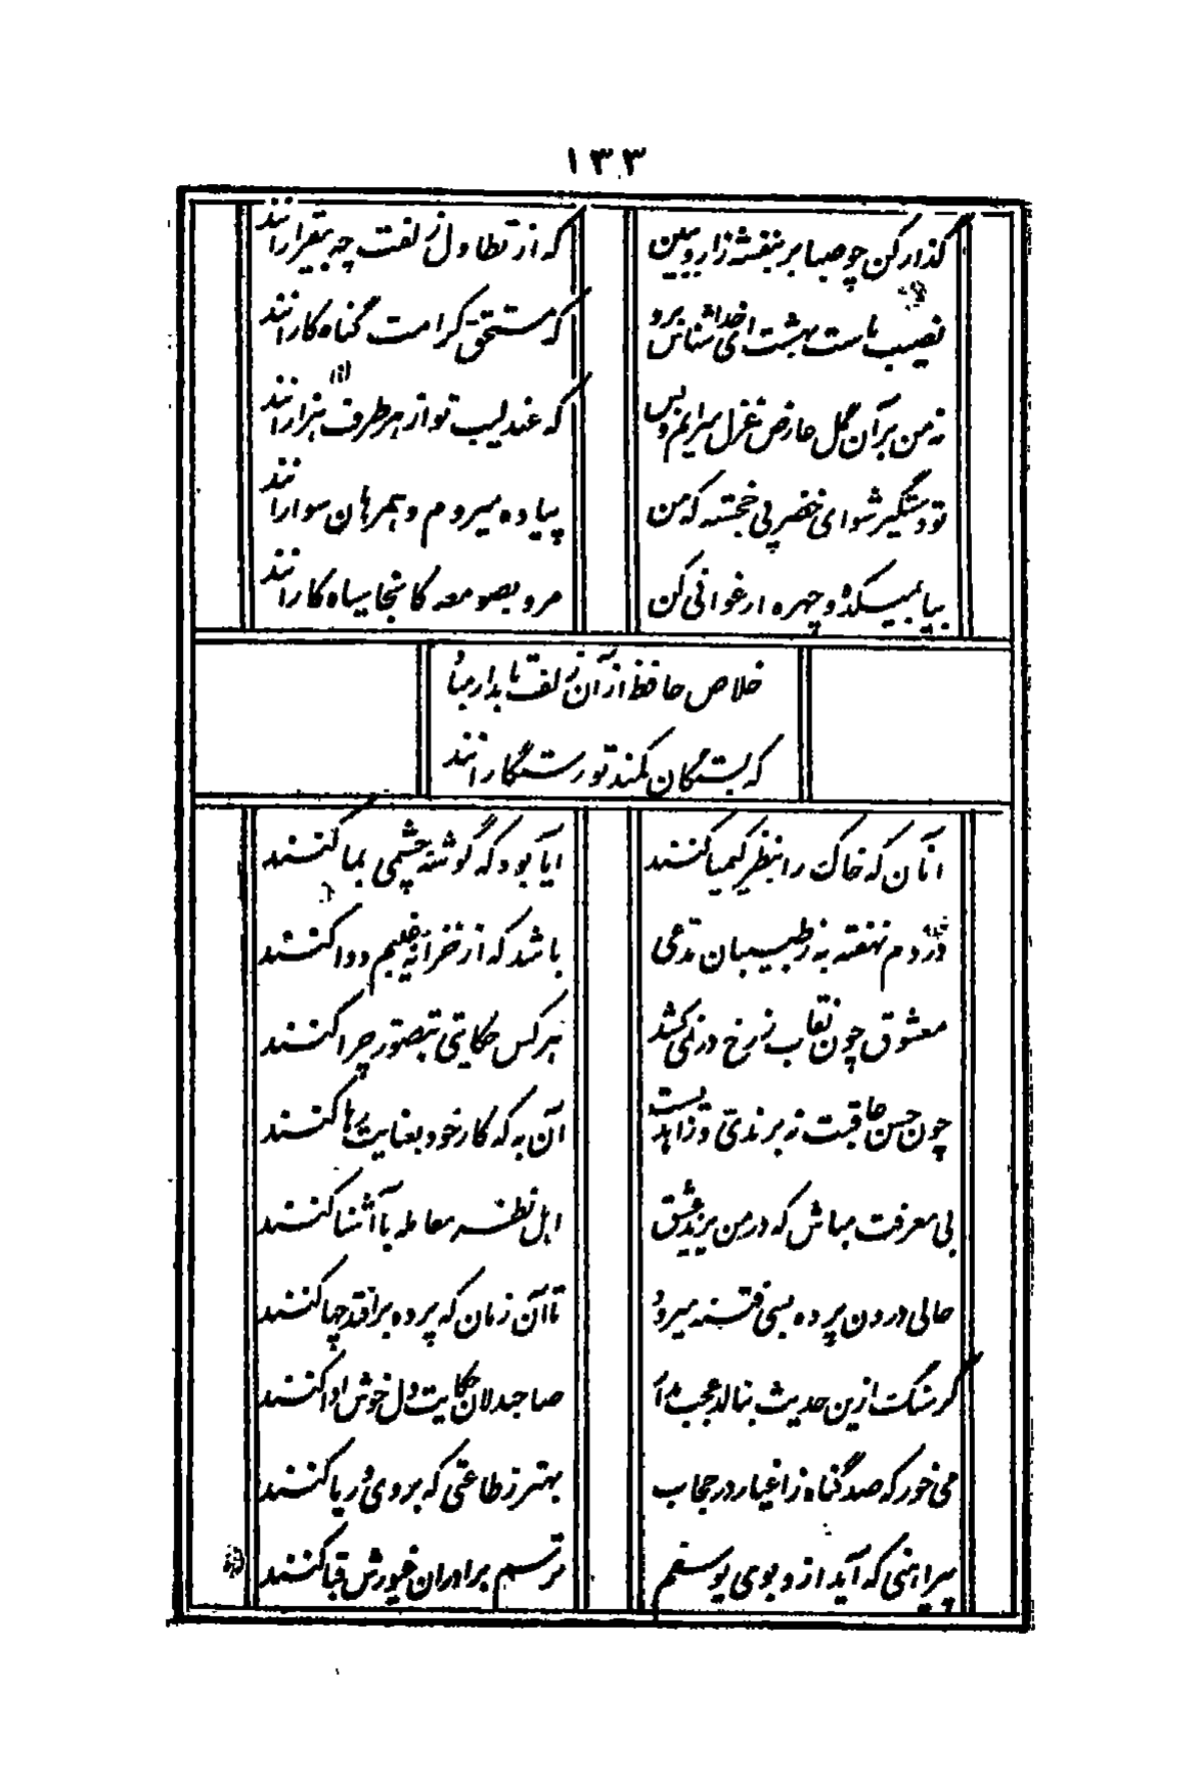 ۱۳۳
گذار کن چو صبا بر بنفشه زار و ببین
که از تطاول زلفت چه بیقرارانند
نصیب ماست بهشت ای خداشناس برو
که مستحق کرامت گناه کارانند
نه من بر آن گل عارض غزل سرایم و بس
که عندلیب تو از هر طرف هزارانند
تو دستگیر شو ای خضر پی خجسته که من
پیاده میروم و همرهان سوارانند
بیا بمیکده و چهره ارغوانی کن
مرو بصومعه کانجا سیاه کارانند
خلاص حافظ از آن زلف تابدار مباد
که بستگان کمند تو رستگارانند
آنان که خاک را بنظر کیمیا کنند
آیا بود که گوشهٔ چشمی بما کنند
دردم نهفته به ز طبیبان مدعی
باشد که از خزانه غیبم دوا کنند
معشوق چون نقاب ز رخ در نمی‌کشد
هر کس حکایتی بتصور چرا کنند
چون حسن عاقبت نه برندی و زاهدیست
آن به که کار خود بعنایت رها کنند
بی معرفت مباش که در من یزید عشق
اهل نظر معامله با آشنا کنند
حالی درون پرده بسی فتنه میرود
تا آن زمان که پرده برافتد چها کنند
گر سنگ ازین حدیث بنالد عجب مدار
صاحبدلان حکایت دل خوش ادا کنند
می خور که صد گناه ز اغیار در حجاب
بهتر ز طاعتی که بروی و ریا کنند
پیراهنی که آید ازو بوی یوسفم
ترسم برادران غیورش قبا کنند